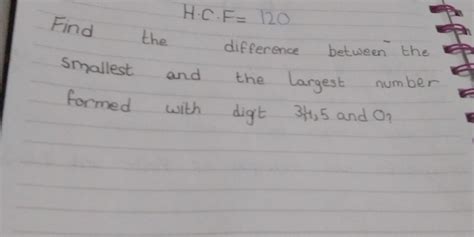 H.C.F= 120
Find the difference between the
smallest and the largest number
formed with digt 3,4,5 and 0?